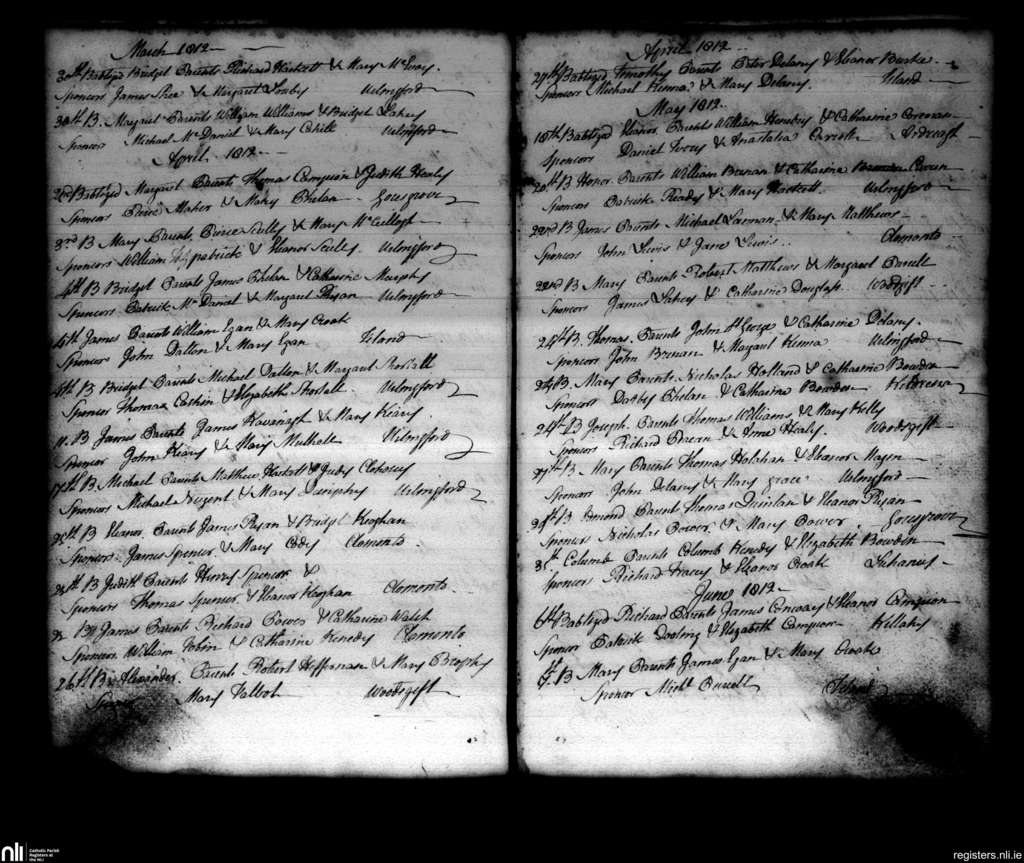 March 1812
30th Babtized Bridget Parents Richard Hackett & Mary McEvoy
Sponsors James Shee & Margaret Urlingford
30th B. Margaret Parents William Williams & Bridget Lahey
Sponsor Michael Mc Daniel & Mary Cahill Urlingford
April 1812
2nd Babtized Margaret Parents Thomas Campion & Judith Healy
Sponsors Pierce Maher & Mary Phelan Gousgrove
3rd B Mary Parents Pierce Scully & Mary McCullogh
Sponsors William Fitzpatrick & Eleanor Scully Urlingford
4th B Bridget Parents James Phelan & Catherine Murphy
Sponsors Patrick Mc Daniel & Margaret Ryan Urlingford
5th James Parents William Egan & Mary Croak
Sponsor John Dalton & Mary Egan Island
8th B Bridget Parents Michael Dalton & Margaret Shortall
Sponsor Thomas Cashin & Elizabeth Shortall Urlingford
11. B James Parents James Kavanagh & Mary Keary
Sponsor John Keary & Mary Mulhall Urlingford
17th B. Michael Parents Matthew Hackett & Judy Clohosey
Sponsors Michael Nugent & Mary Dunphy Urlingford
20th B Eleanor Parents James Ryan & Bridget Keoghan
Sponsors James Spencer & Mary Cody Clomonto
B Judith Parents Henry Spencer &
Sponsors Thomas Spencer & Eleanor Keoghan Clomonto
22 B James Parents Richard Power & Catharine Walsh
Sponsors William Tobin & Catharine Kenedy Clomonto
26th B. Alexander Parents Robert Heffernan & Mary Brophy
Mary Talbot Woodsgift
April 1812
29th Babtized Timothy Parents Peter Delany & Eleanor Burke
Sponsors Michael Kenna & Mary Delany Island
May 1812
18th Babtized Eleanor Parents William Hendry & Catharine Brenan
Sponsors Daniel & Anastatia Carroll
20th B Honor Parents William Brenan & Catharine Bowen
Sponsors Patrick Ready & Mary Hackett Urlingford
22nd B James Parents Michael Larman & Mary Matthews
Sponsors John Lewis & Jane Lewis Clomonto
22nd B Mary Parents Robert Matthews & Margaret Purcell
Sponsors James Lahey & Catharine Douglass Woodsgift
24th B. Thomas Parents John St George & Catharine Delany
Sponsors John Brenan & Margaret Kenna Urlingford
24 B. Mary Parents Nicholas Holland & Catharine Bowden
Sponsors Darby Phelan & Catharine Bowden
24th B Joseph Parents Thomas Williams & Mary Kelly
Sponsors Richard & Anne Healy Woodsgift
27th B Mary Parents Thomas Holohan & Eleanor
Sponsors John Delany & Mary Grace Urlingford
B Edmond Parents Thomas Quinlan & Eleanor Ryan
Sponsor Nicholas Power & Mary Power Gousgrove
31th Columb Parents Columb Kenedy & Elizabeth Bowden
Sponsors Richard Tracey & Eleanor Croak
June 1812
6th Babtized Richard Parents James Conway & Eleanor Campion
Sponsor Patrick Dooling & Elizabeth Campion
7th B Mary Parents James Egan & Mary Croak
Sponsor Michl Purcell Island
nli
Catholic Parish
Registers at
the NLI
registers.nli.ie